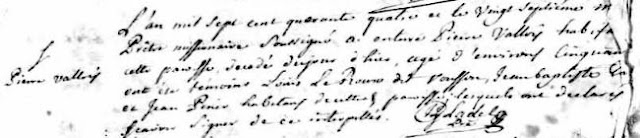 L'an mil sept cent quarante quatre et le vingt septieme
Prêtre missionaire Soussigné a enterré Pierre Vallois habit
Pierre vallois
cette paroisse, decedé d'hier, agé d'environ cinquan
ont été temoins Louis Le Roux dit Jean baptiste
et Jean habitans de cette paroisse lesquels ont declarés
Scavoir Signer de ce interpellés.